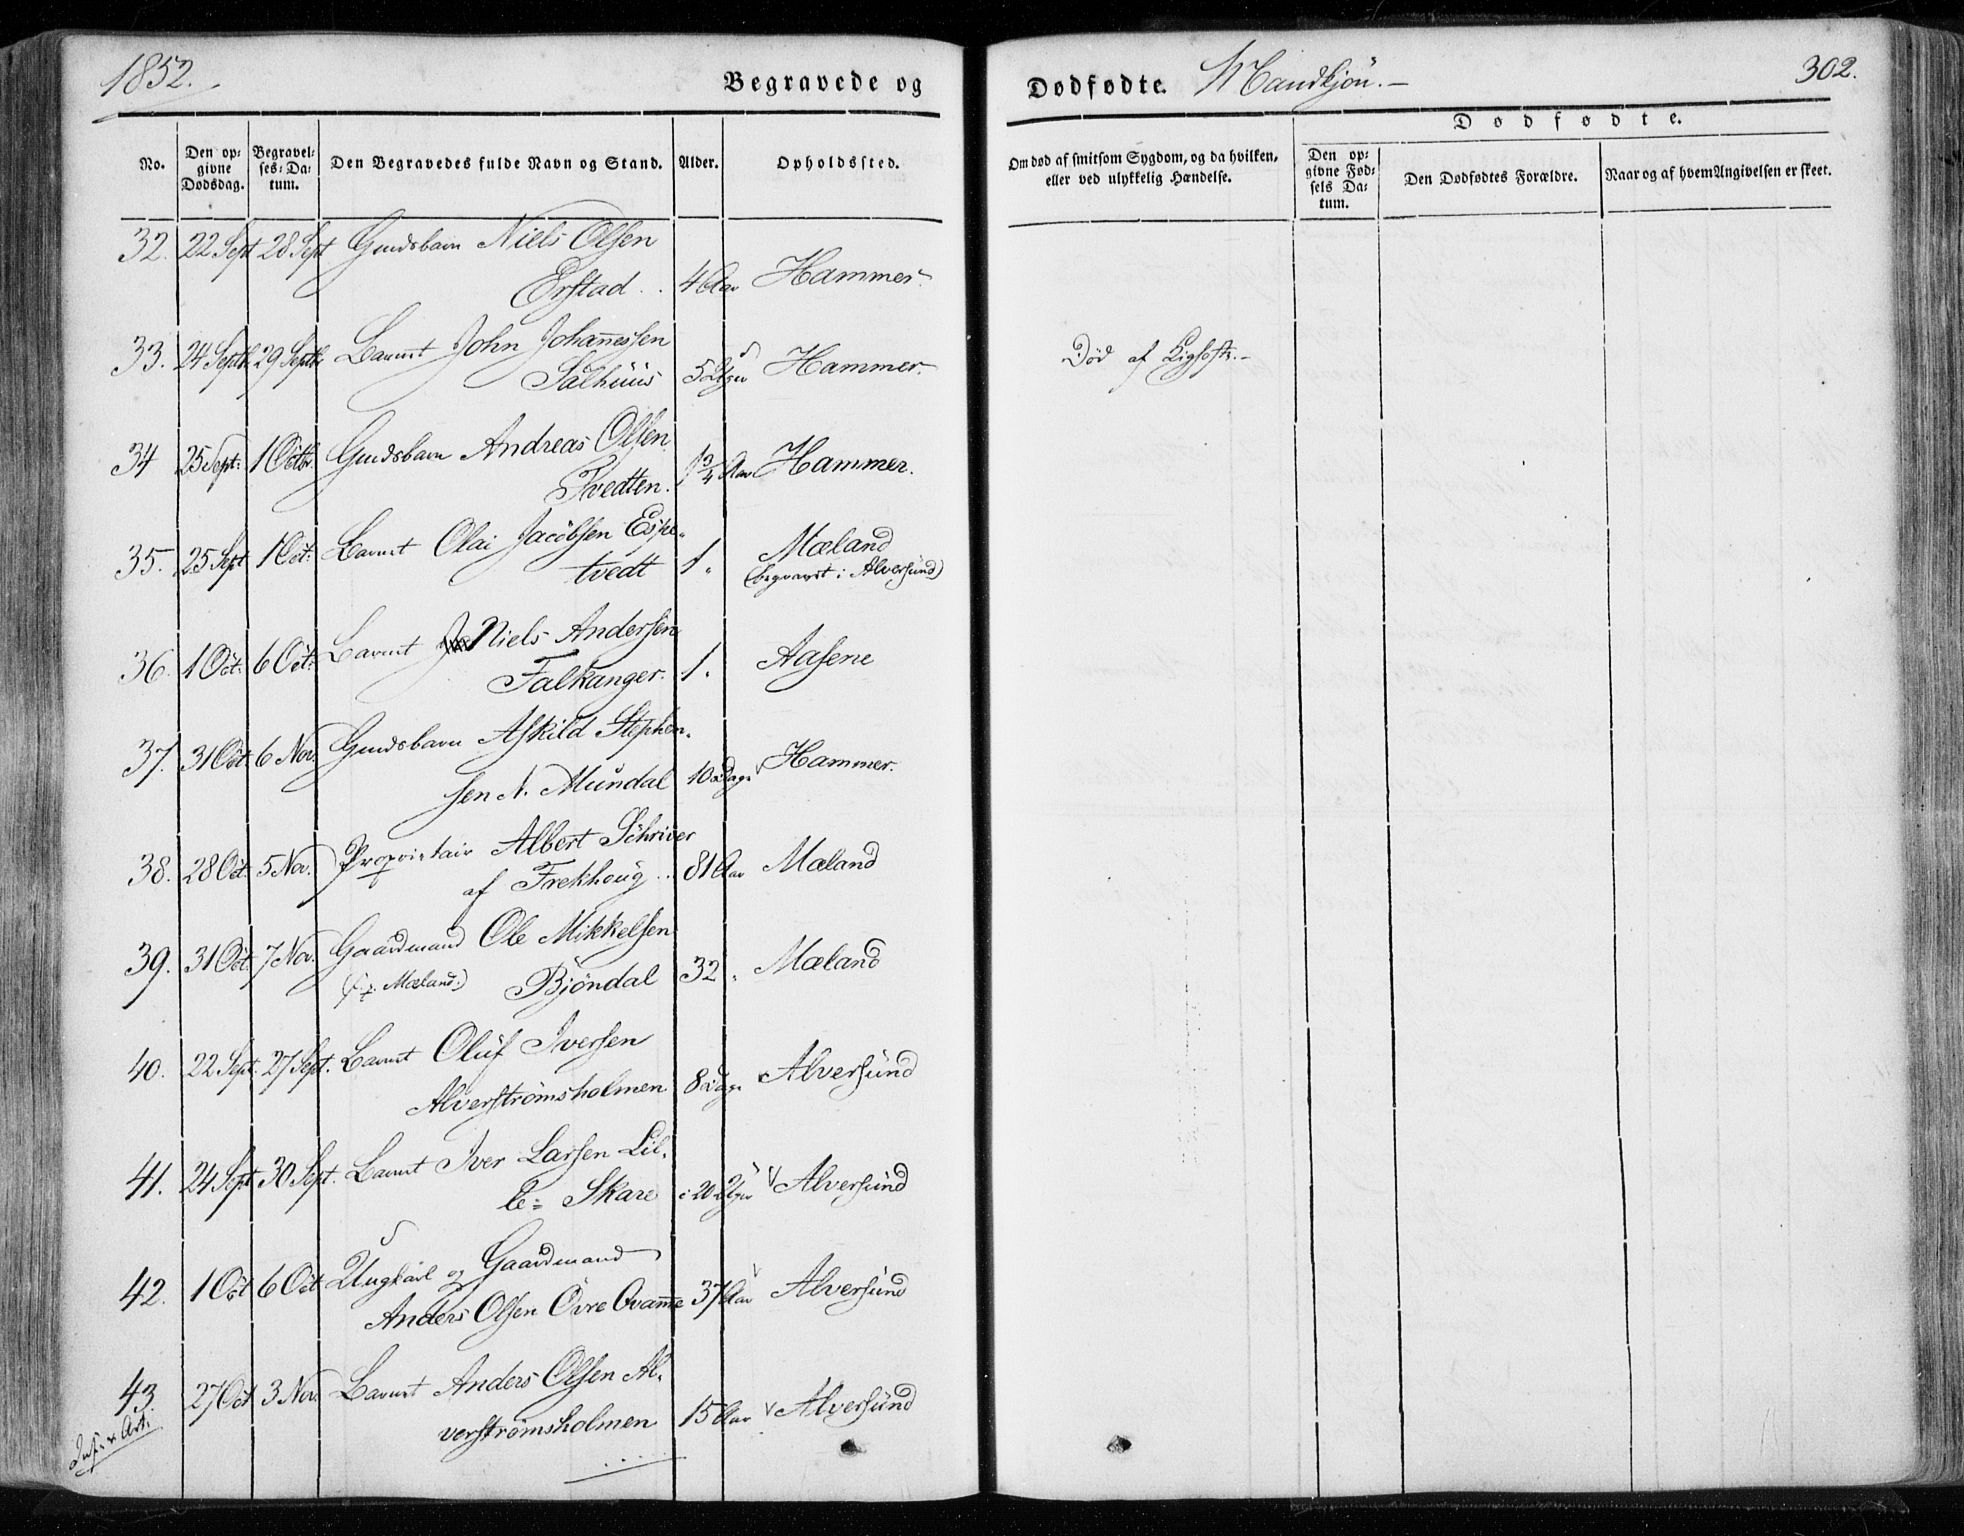 1852.
Begravede og
Dødfødte. Mandkjøn.-
302.
No.
Den opgivne Dødsdag.
Begravelses-Datum.
Den Begravedes fulde Navn og Stand.
Alder.
Opholdssted.
Om død af smitsom Sygdom, og da hvilken, eller ved ulykkelig Hændelse.
Dødfødte.
Den opgivne Fødsels Datum.
Den Dødfødtes Forældre.
Naar og af hvem Angivelsen er skeet.
32. 22 Sept 28 Sept Niels Olsen
Erstad. 4 Aar Hammer.
33. 24 Septb. 29 Septb. Barnet John Johannessen
Salhuus 5 Uger Hammer. Død af Kighoste.-
34 25 Sept: 1 Octb. Andreas Olsen
Tvedten. 1 3/4 Aar Hammer.
35. 25 Sept 1 Oct: Barnet Olai Jacobsen Espe-
tvedt 1 " Mæland
(begravet i Alversund)
36. 1 Oct: 6 Oct: Barnet Niels Andersen
Falkanger. 1 " Aasene
37. 31 Oct. 6 Nov. Askild Stephen-
sen N. Mundal 10 Dage Hammer.
38. 28 Oct. 5 Nov. Proprietair Albert Schriver
af Frekhoug .. 81 Aar Mæland
39. 31 Oct. 7 Nov. Gaardmand Ole Mikkelsen
Mæland.) Bjøndal 32 " Mæland
40. 22 Sept. 27 Sept. Barnet Oluf Iversen
Alverstrømsholmen 8 Dage Alversund
41. 24 Sept 30 Sept. Barnet Iver Larsen Lil-
le= Skare 20 Uger Alversund
42. 1 Oct 6 Oct Ungkarl og Gaardmand
Anders Olsen Øvre Qvamme 37 Aar Alversund
43. 27 Oct 3 Nov. Barnet Anders Olsen Al-
verstrømsholmen 15 Aar Alversund